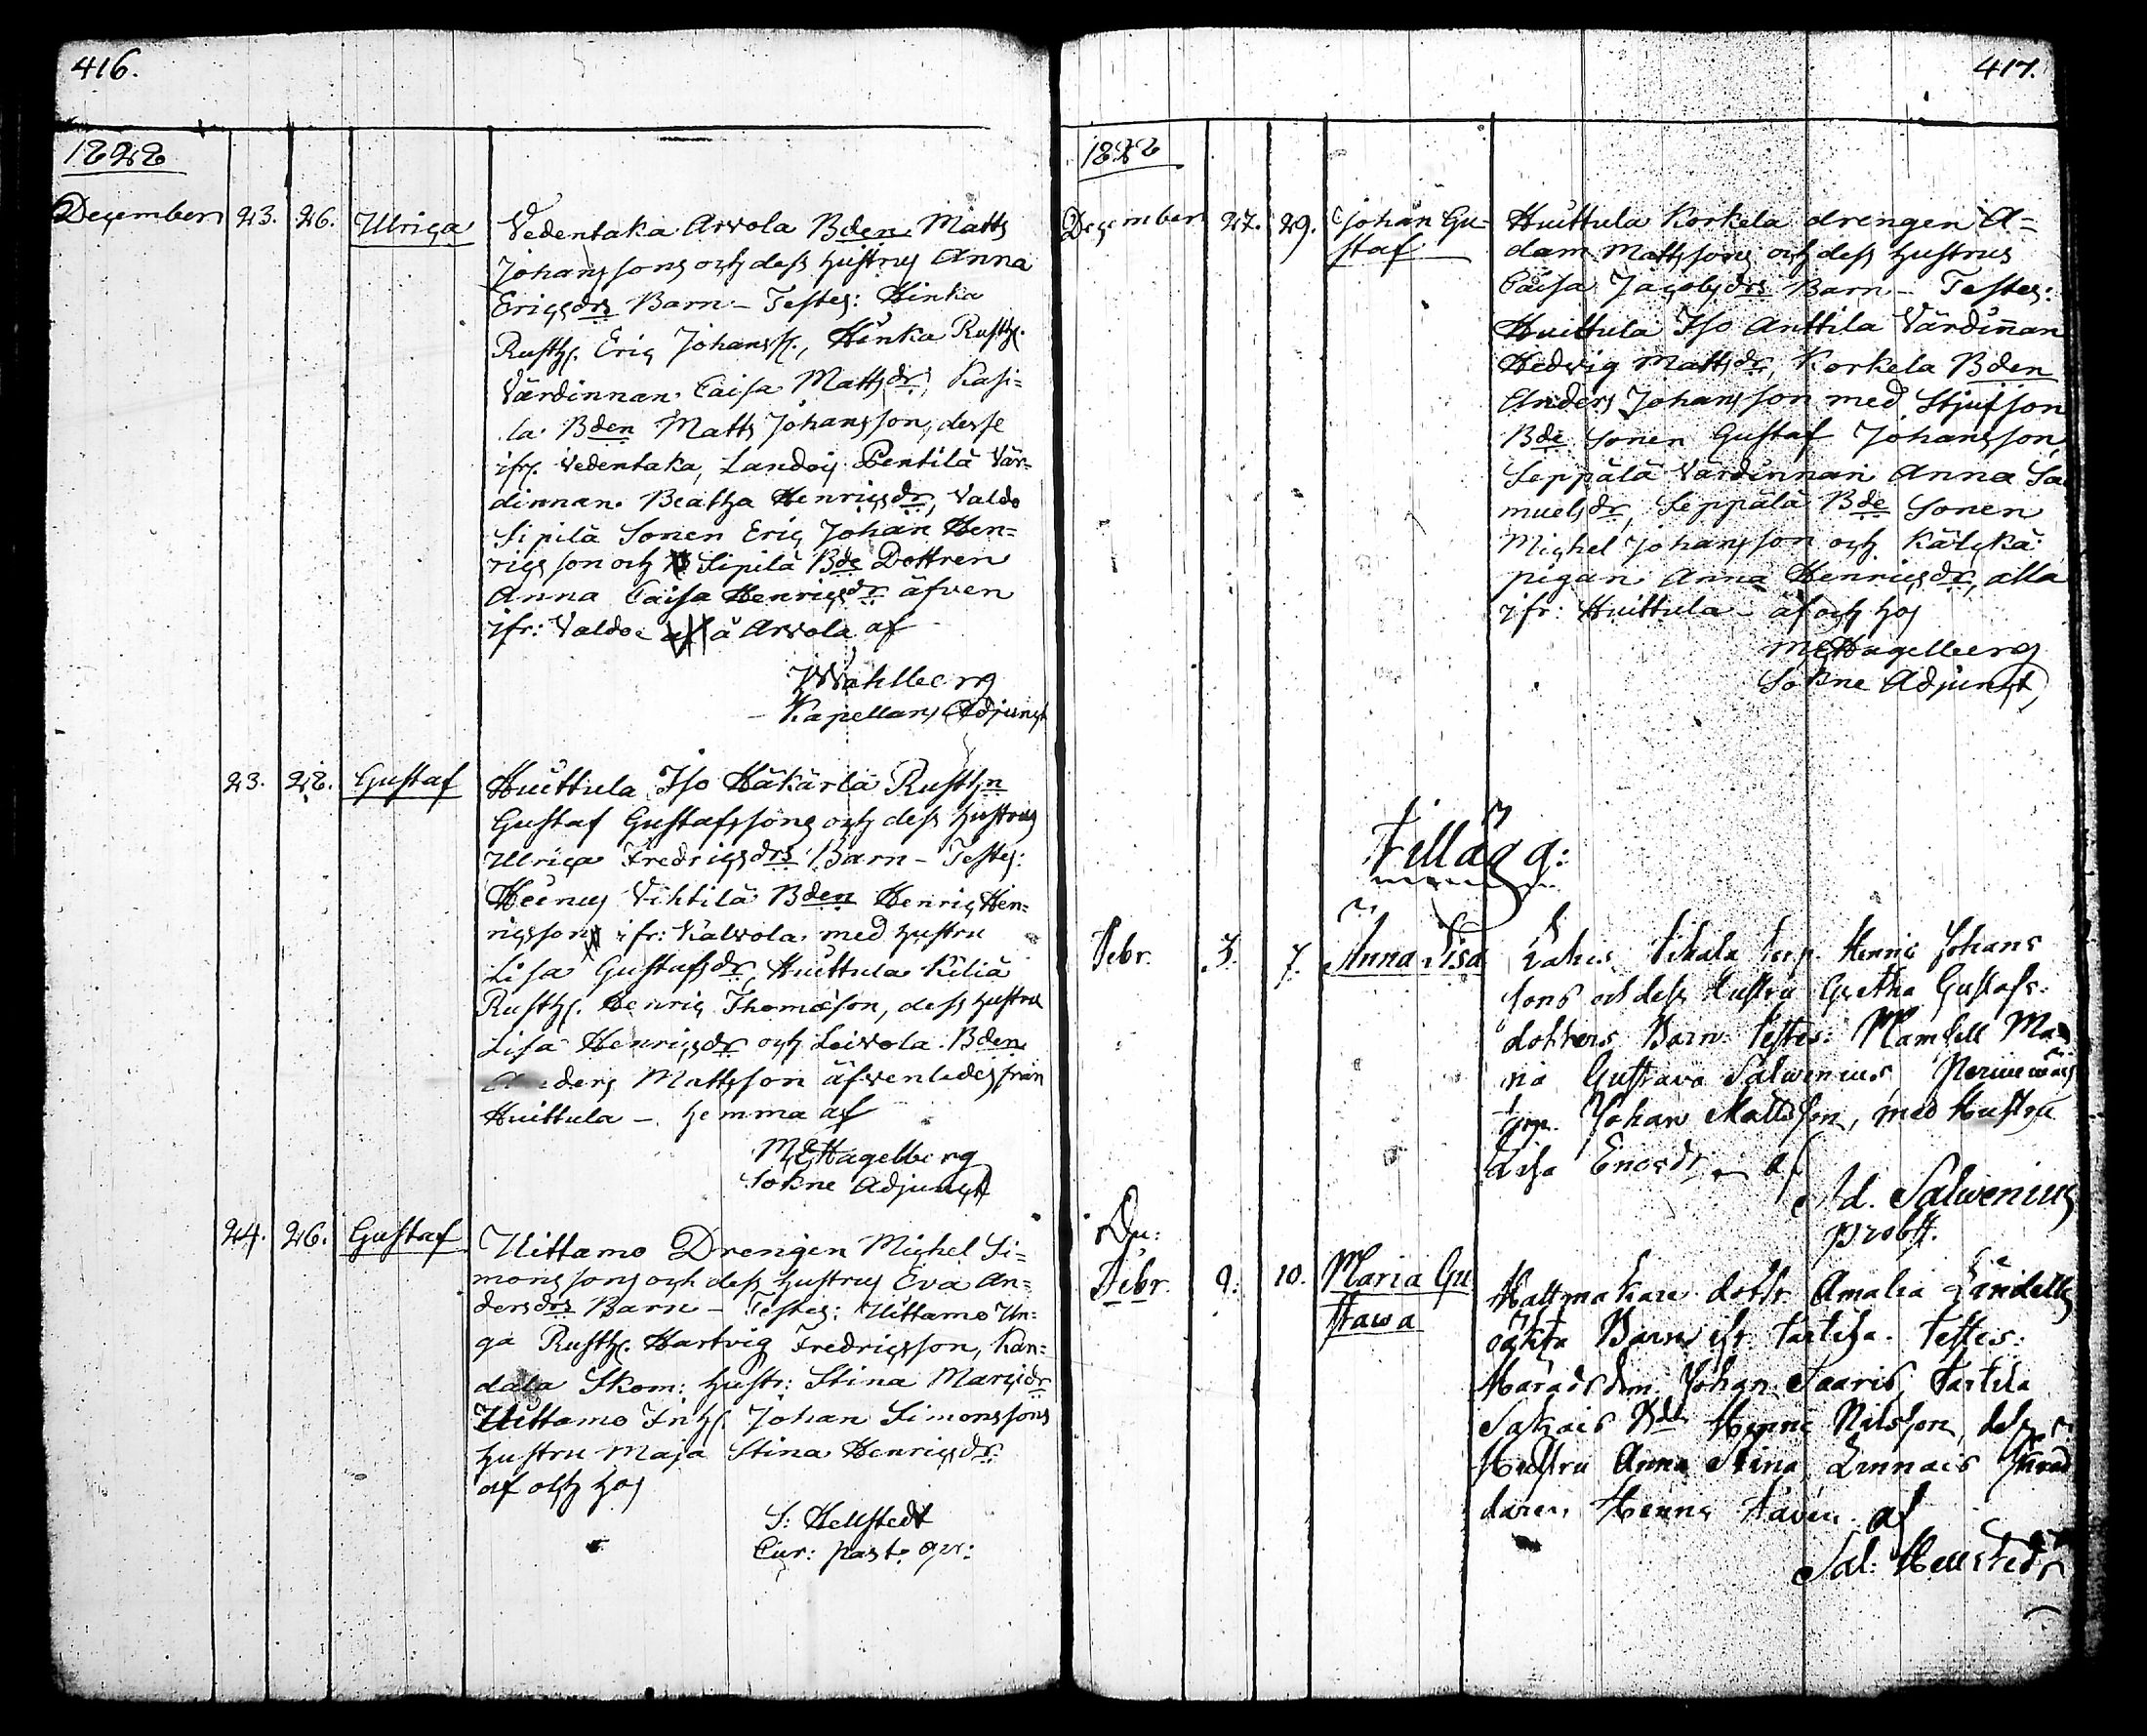 416.
1828
December 23. 26. Ulrica Vedentaka Arvola Bden Matts
Johanssons och dess hustrus Anna
Ericsdrs Barn – Testes: Hinka
Rusth. Eric Johanss., Hinka Rusth.
Värdinnan Caisa Mattsdr, Kasi=
la Bden Matts Johansson, desse
ifr. Vedentaka, Landoi Pentilä Vär=
dinnan Beatha Henricsdr, Valdo
Sipilä Sonen Eric Johan Hen=
ricsson och Sipilä Bde Dottren
Anna Caisa Henricsdr äfven
ifr: Valdo å Arvola af
Wahlberg
Kapellans Adjunct
23. 28. Gustaf Huittula Iso Häkärlä Rusthn
Gustaf Gustafssons och dess hustrus
Ulrica Fredricsdrs Barn – Testes:
Vihtilä Bden Henric Hen=
ricsson ifr: Kalvola med hustru
Lisa Gustafsdr, Huittula Kiliä
Rusth. Henric Thomasson, dess hustru
Lisa Henricsdr och Leivola Bden
Anders Mattsson äfvenledes från
Huittula – hemma af
M E Hagelberg
Sokne Adjunct
24. 26. Gustaf Uittamo Drengen Michel Si=
monssons och dess hustrus Eva An=
dersdrs Barn – Testes: Uittamo Un=
ga Rusth. Hartvig Fredricsson, Kan=
dala Skom: hustr: Stina Marcsdr
Uittamo Inh. Johan Simonssons
hustru Maja Stina Henricsdr
af och hos
S: Hellstedt
Cur: past: opr:
417.
1828
December 27. 29. Johan Gu=
staf Huittula Korkela drengen A=
dam Mattssons och dess hustrus
Caisa Jacobsdrs Barn – Testes:
Huittula Iso Anttila Värdinnan
Hedvig Mattsdr, Korkela Bden
Anders Johansson med Stjufson
Bde Sonen Gustaf Johansson,
Seppälä Värdinnan Anna Sa
muelsdr, Seppälä Bde Sonen
Michel Johansson och Kälckä
pigan Anna Henricsdr, alla
ifr: Huittula – af och hos
M E Hagelberg
Sokne Adjunct,
Tillägg:
Febr. 3. 7. Anna Lisa Lahis torp. Henric Johans
sons och dess Hustru Gretha Gustafs
dotters Barn. Testes: Mamsell Ma
ria Gustava Salvenius,
torp. Johan Mattsson, med Hustru
Lisa Enosdr – af
Ad. Salvenius
probst.
Du:
Febr. 9. 10. Maria Gu
stava Hattmakare dottr Amalia Lindells
oäkta Barn ifr Tarttila. Testes:
Häradsdom. Johan Saaris, Tarttila
Sakais Bd Henric Nilsson, dess
Hustru Anna Stina Linnais Skräd
daren Henric af
Sal: Hellstedt